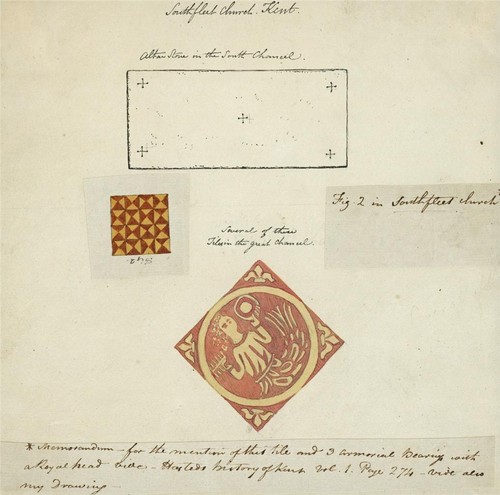 Southfleet Church. Kent.
Altar Stone in the South Chancel.
Fig. 2 in Southfleet church
Several of these
Tiles in the great Chancel.
* Memorandum - for the mention of this tile and 3 armorial Bearings with
a Royal head vide - Hasteds history of Kent Vol. 1. Page 274 - vide also
my Drawing